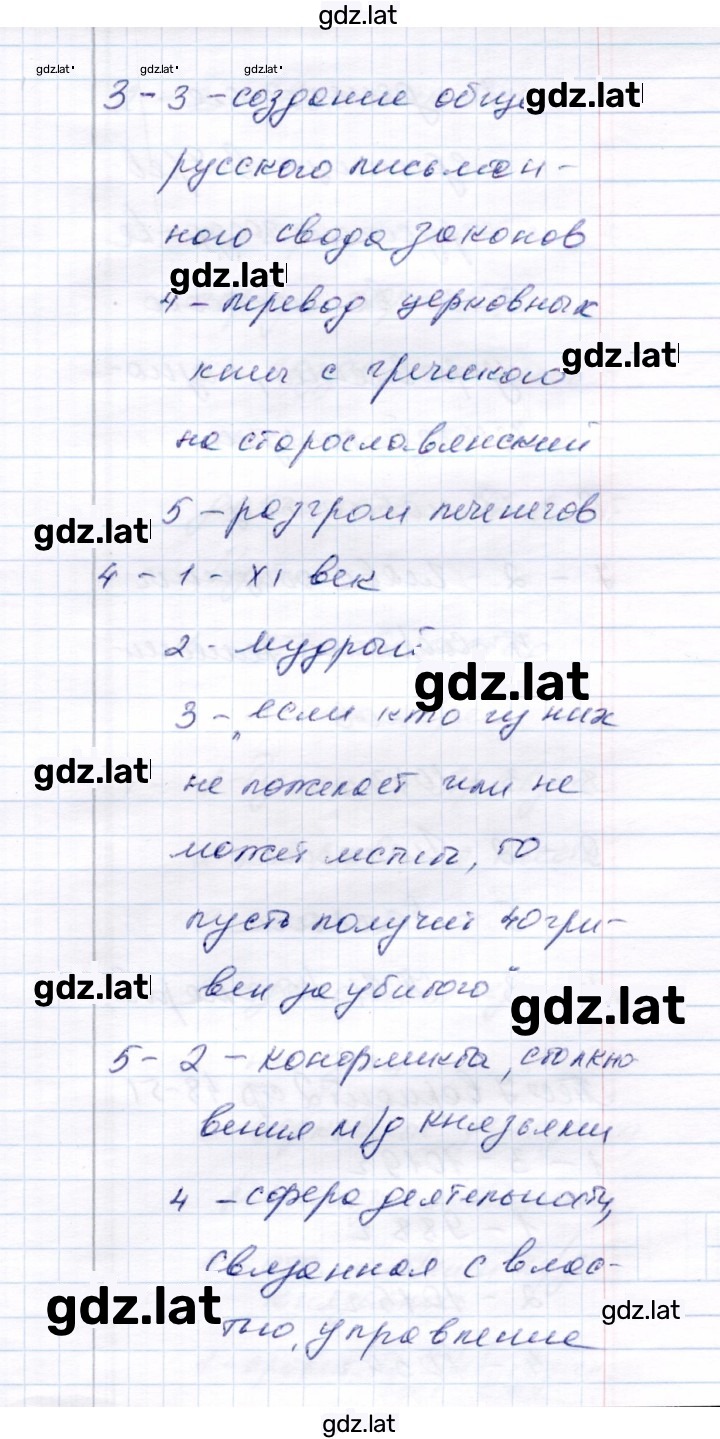 gdz.lat
gdz.lat gdz.lat gdz.lat
3 - 3 - создание обще gdz.lat
русского письмен-
ного свода законов
gdz.lat
4 - перевод церковных
gdz.lat
книг с греческого
на старославянский
5 - разгром печенегов
gdz.lat
4 - 1 - XI век
2 - Мудрый
gdz.lat
3 - "если кто из них
gdz.lat
не пожелает или не
может мстить, то
пусть получит 40 гри-
вен за убитого"
gdz.lat gdz.lat
5 - 2 - конфликта, столкно-
вения м/д князьями
4 - сфера деятельности,
связанная с влас-
gdz.lat gdz.lat
тью, управление
gdz.lat